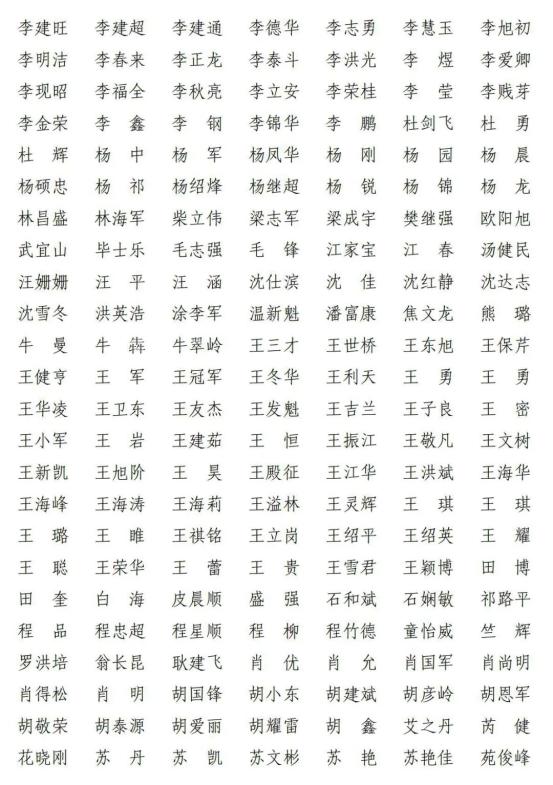 李建旺 李建超 李建通 李德华 李志勇 李慧玉 李旭初
李明洁 李春来 李正龙 李泰斗 李洪光 李　煜 李爱卿
李现昭 李福全 李秋亮 李立安 李荣桂 李　莹 李贱芽
李金荣 李　鑫 李　钢 李锦华 李　鹏 杜剑飞 杜　勇
杜　辉 杨　中 杨　军 杨凤华 杨　刚 杨　园 杨　晨
杨硕忠 杨　祁 杨绍烽 杨继超 杨　锐 杨　锦 杨　龙
林昌盛 林海军 柴立伟 梁志军 梁成宇 樊继强 欧阳旭
武宜山 毕士乐 毛志强 毛　锋 江家宝 江　春 汤健民
汪姗姗 汪　平 汪　涵 沈仕滨 沈　佳 沈红静 沈达志
沈雪冬 洪英浩 涂李军 温新魁 潘富康 焦文龙 熊　璐
牛　曼 牛　犇 牛翠岭 王三才 王世桥 王东旭 王保芹
王健亨 王　军 王冠军 王冬华 王利天 王　勇 王　勇
王华凌 王卫东 王友杰 王发魁 王吉兰 王子良 王　密
王小军 王　岩 王建茹 王　恒 王振江 王敬凡 王文树
王新凯 王旭阶 王　昊 王殿征 王江华 王洪斌 王海华
王海峰 王海涛 王海莉 王溢林 王灵辉 王　琪 王　琪
王　璐 王　睢 王祺铭 王立岗 王绍平 王绍英 王　耀
王　聪 王荣华 王　蕾 王　贵 王雪君 王颖博 田　博
田　奎 白　海 皮晨顺 盛　强 石和斌 石娴敏 祁路平
程　品 程忠超 程星顺 程　柳 程竹德 童怡威 竺　辉
罗洪培 翁长昆 耿建飞 肖　优 肖　允 肖国军 肖尚明
肖得松 肖　明 胡国锋 胡小东 胡建斌 胡彦岭 胡恩军
胡敬荣 胡泰源 胡爱丽 胡耀雷 胡　鑫 艾之丹 芮　健
花晓刚 苏　丹 苏　凯 苏文彬 苏　艳 苏艳佳 苑俊峰